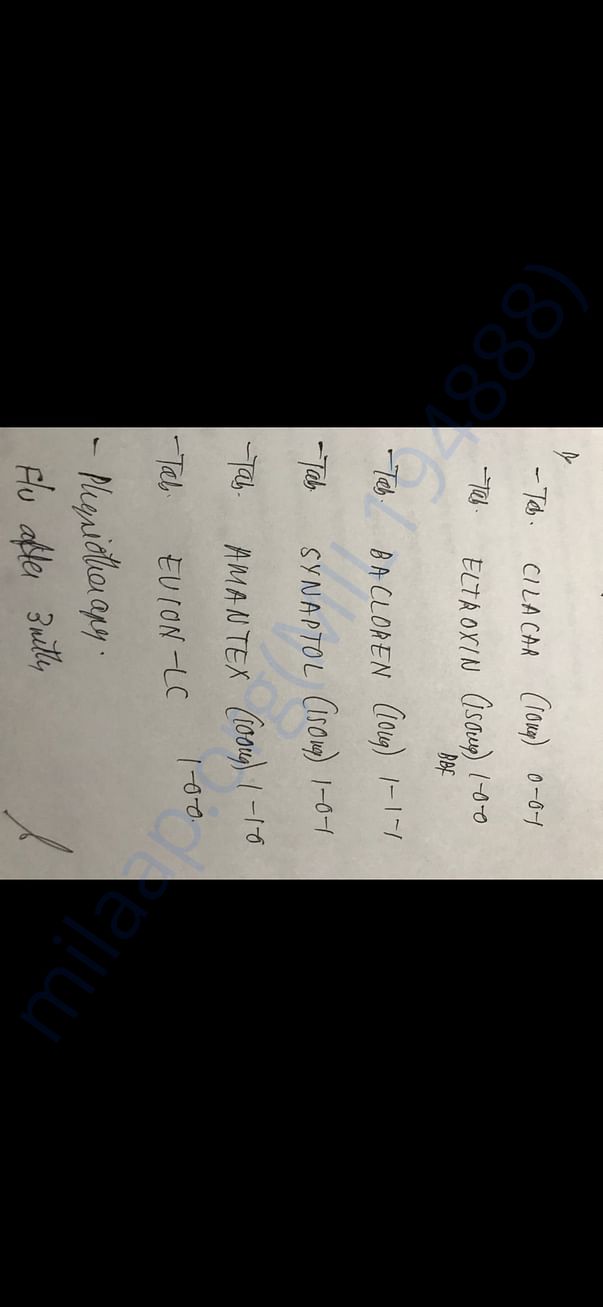 - Tab. CILACAR (10mg) 0-0-1
- Tab. ELTROXIN (150mg) 1-0-0
BBF
- Tab. BACLOREN (10mg) 1-1-1
- Tab. SYNAPTOL (150mg) 1-0-1
- Tab. AMANTEX (100mg) 1-1-0
- Tab. EVION-LC 1-0-0.
- Physiotherapy.
F/u after 3 mths
milaap.org(MIL194888)